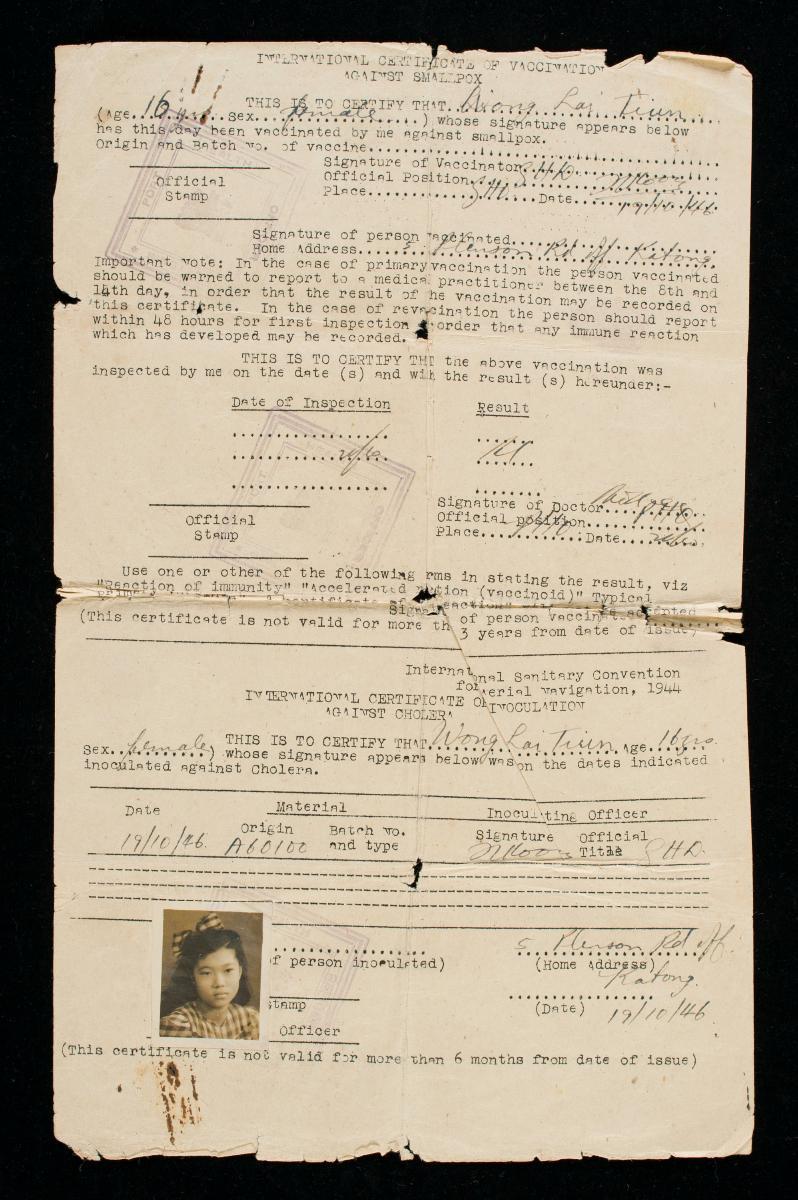 INTERNATIONAL CERTIFICATE OF VACCINATION
AGAINST SMALLPOX
THIS IS TO CERTIFY THAT Wong Lai Tiun
(Age 16 yrs Sex female) whose signature appears below
has this day been vaccinated by me against smallpox.
Origin and Batch No. of vaccine
Signature of Vaccinator
Official Position SHD
Place Date 19/10/46
Official
Stamp
Signature of person vaccinated
Home Address 5 Rd off Katong
Important Note: In the case of primary vaccination the person vaccinated
should be warned to report to a medical practitioner between the 8th and
14th day, in order that the result of he vaccination may be recorded on
this certificate. In the case of revaccination the person should report
within 48 hours for first inspection order that any immune reaction
which has developed may be recorded.
THIS IS TO CERTIFY TH T the above vaccination was
inspected by me on the date (s) and with the result (s) hereunder:-
Date of Inspection Result
Signature of Doctor
Official position
Place Date
Official
Stamp
Use one or other of the following rms in stating the result, viz
"Reaction of immunity" "Accelerated tion (vaccinoid)" Typical
Signa of person vaccinated
(This certificate is not valid for more th 3 years from date of issue)
International Sanitary Convention
for Aerial Navigation, 1944
INTERNATIONAL CERTIFICATE OF INOCULATION
AGAINST CHOLERA
THIS IS TO CERTIFY THAT Wong Lai Tiun Age 16 yrs.
Sex female) whose signature appears below was on the dates indicated
inoculated against Cholera.
Date Material Inoculating Officer
Origin Batch No. and type Signature Official Title
19/10/46 A60100 SHD.
5 Rd off
f person inoculated) (Home Address)
Katong.
tamp (Date) 19/10/46
Officer
(This certificate is not valid for more than 6 months from date of issue)